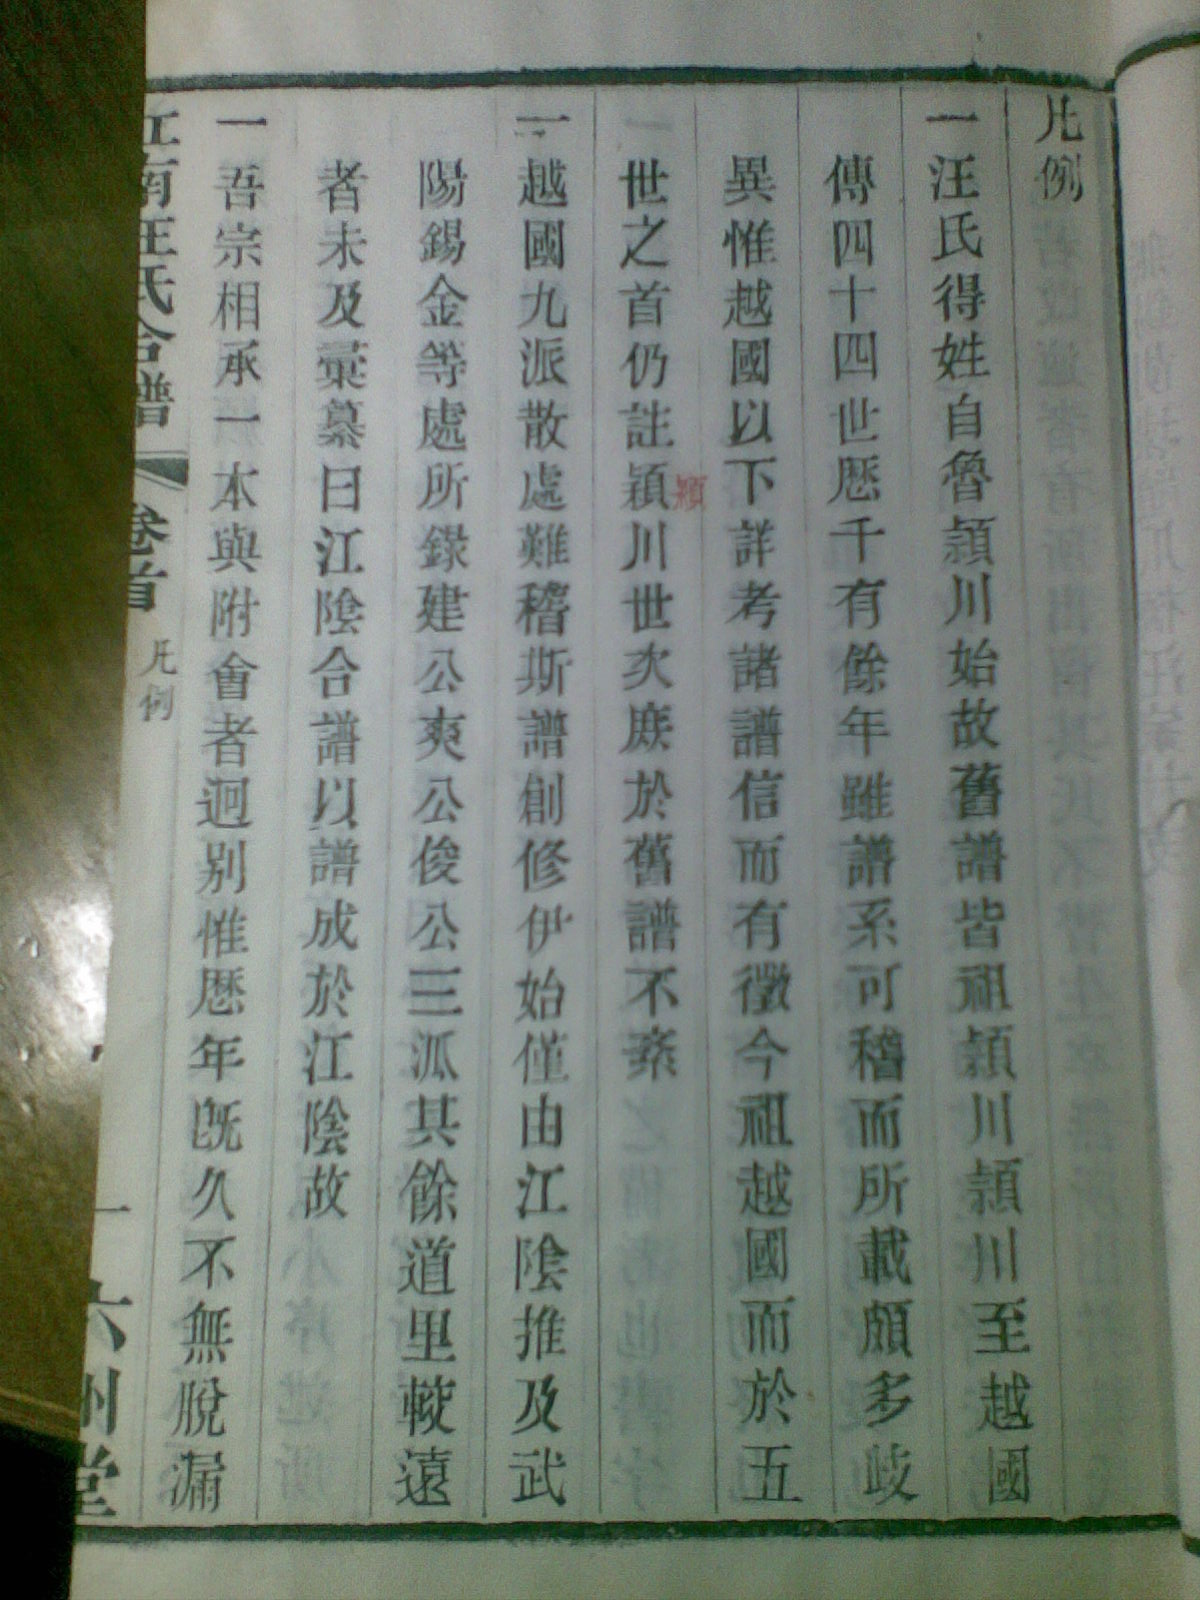 凡例
一汪氏得姓自魯頴川始故舊譜皆祖頴川頴川至越國
傳四十四世歴千有餘年雖譜系可稽而所載頗多歧
異惟越國以下詳考諸譜信而有徵今祖越國而於五
世之首仍註頴川世次庶於舊譜不紊
穎
一越國九派散處難稽斯譜創修伊始僅由江陰推及武
陽錫金等處所錄建公爽公俊公三派其餘道里較遠
者未及彙纂曰江陰合譜以譜成於江陰故
一吾宗相承一本與附會者迥别惟歴年旣久不無脫漏
江南汪氏合譜 卷首 凡例 一 六州堂